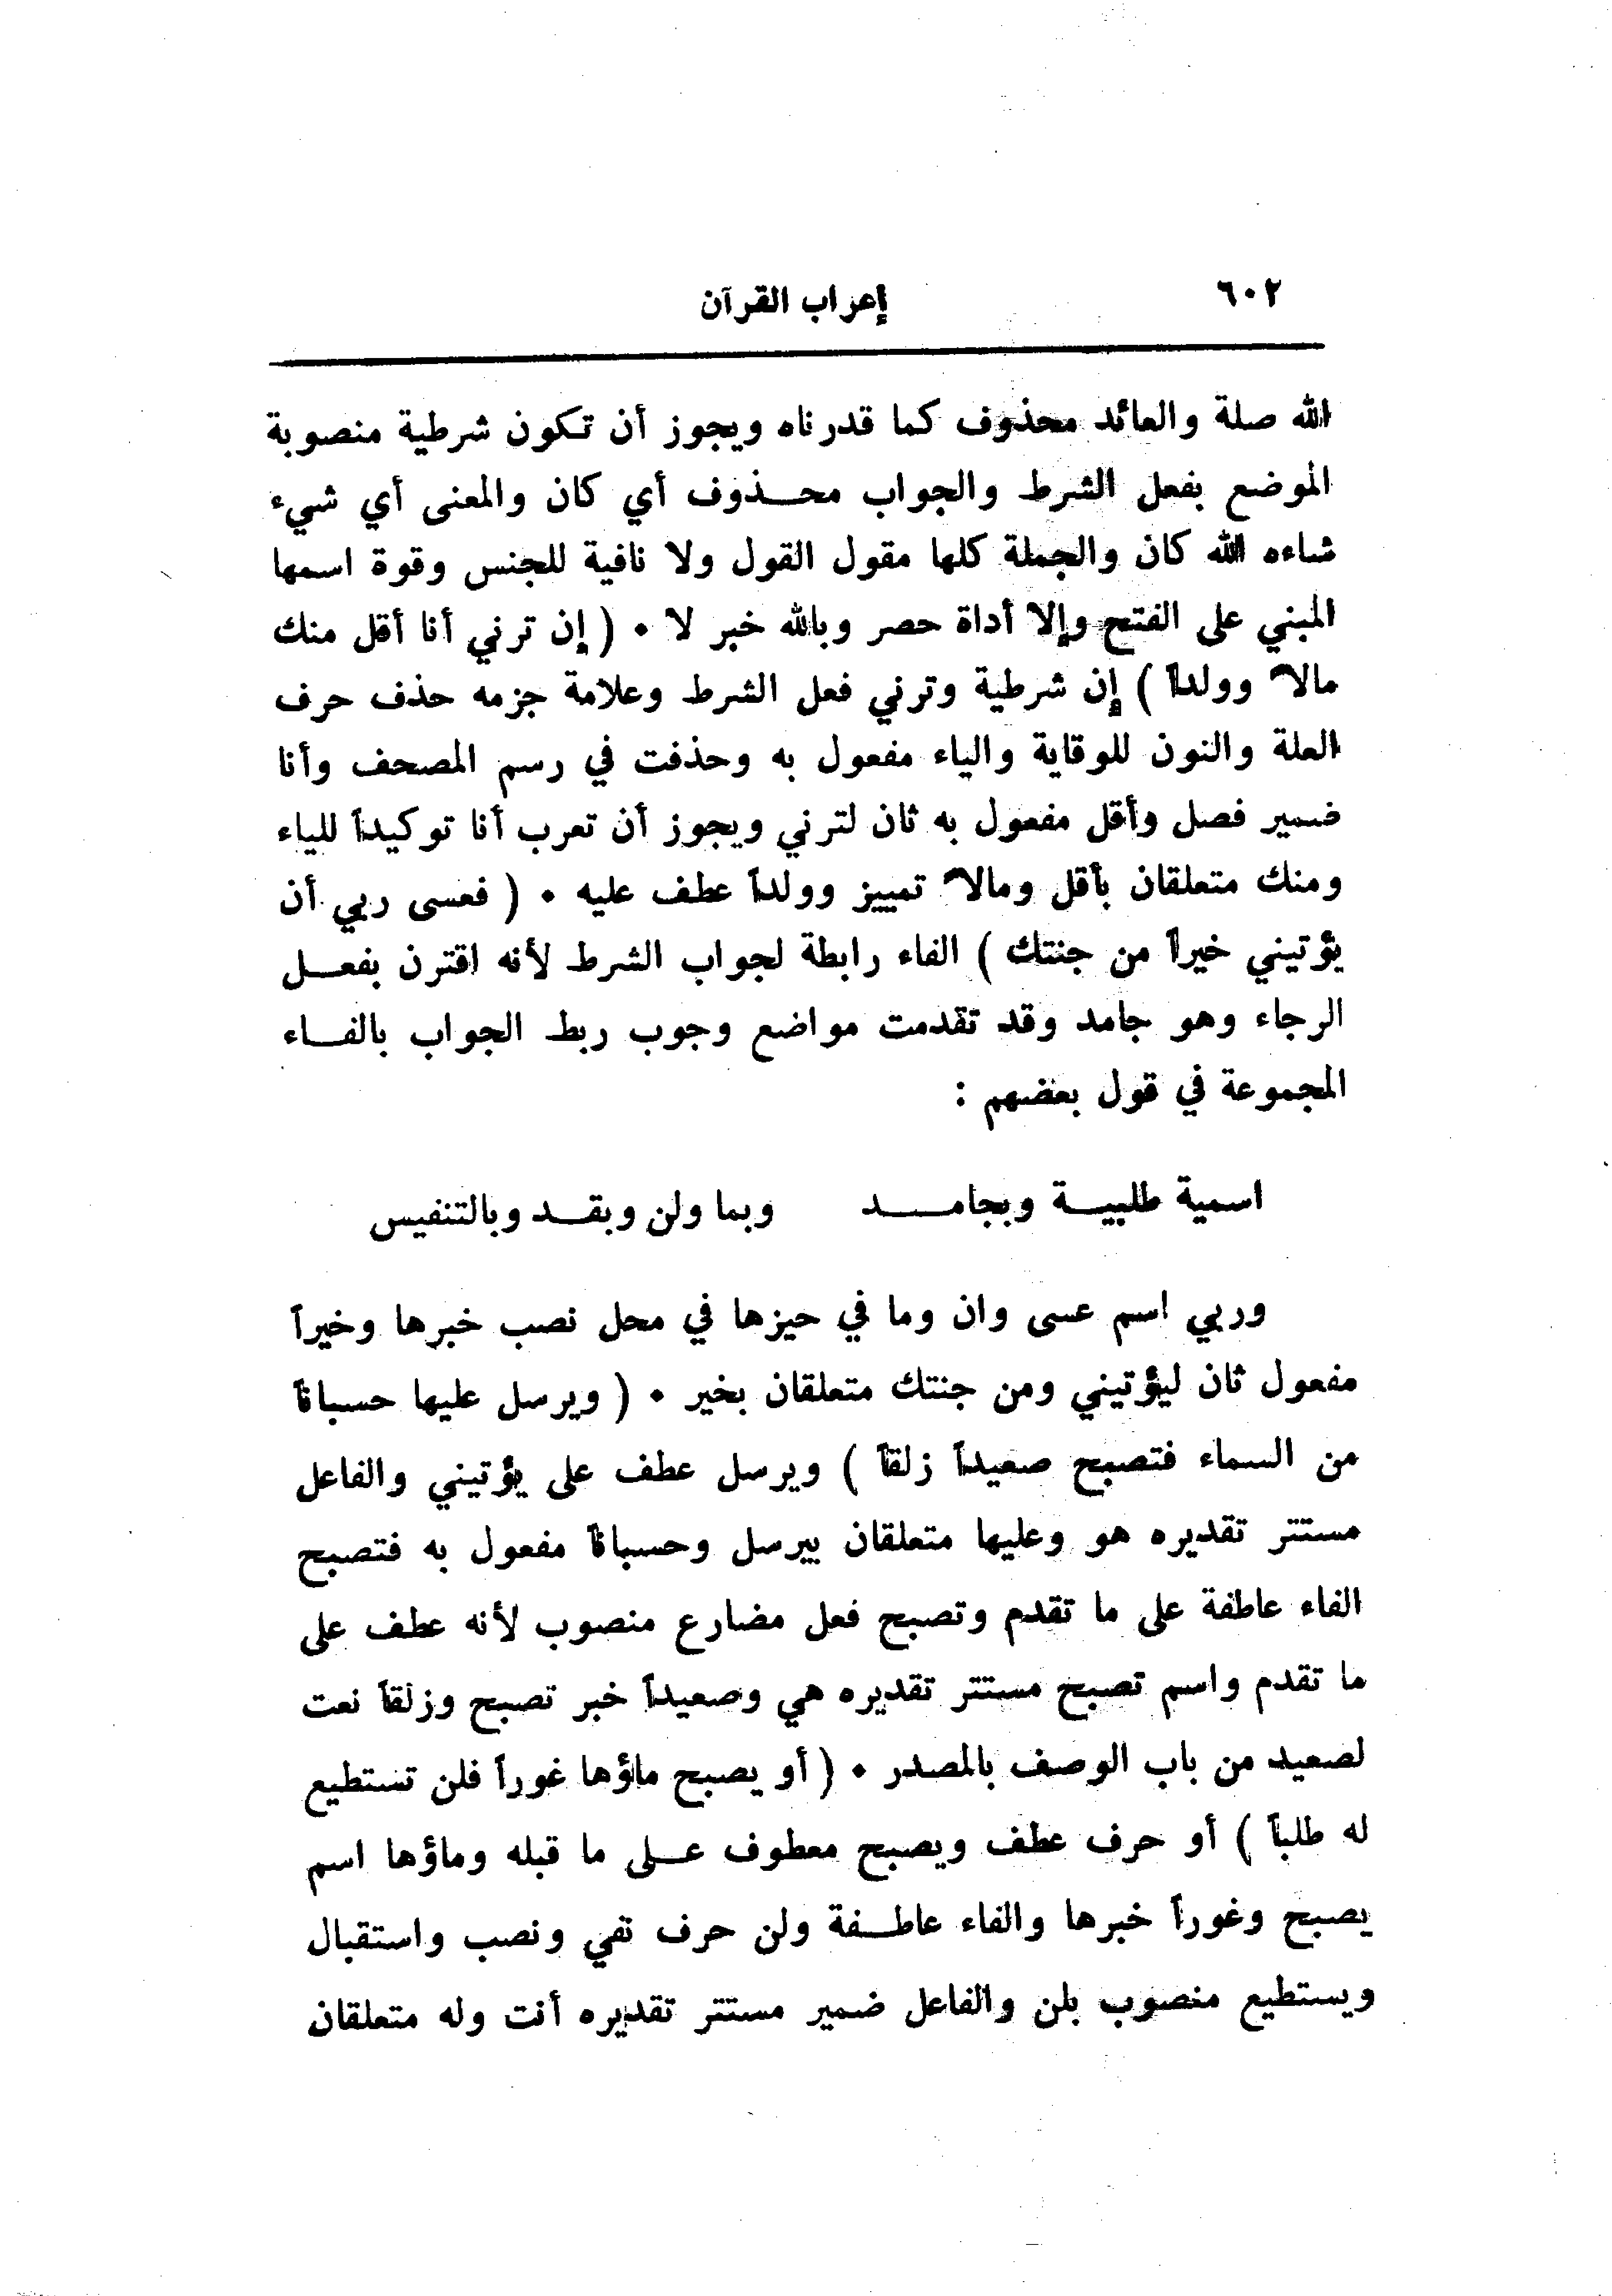 ٦٠٢
إعراب القرآن
الله صلة والعائد محذوف كما قدرناه ويجوز أن تكون شرطية منصوبة
الموضع بفعل الشرط والجواب محـــذوف أي كان والمعنى أي شيء
شاءه الله كان والجملة كلها مقول القول ولا نافية للجنس وقوة اسمها
المبني على الفتح وإلا أداة حصر وبالله خبر لا ٠ ( إن ترني أنا أقل منك
مالاً وولداً ) إن شرطية وترني فعل الشرط وعلامة جزمه حذف حرف
العلة والنون للوقاية والياء مفعول به وحذفت في رسم المصحف وأنا
ضمير فصل وأقل مفعول به ثان لترني ويجوز أن تعرب أنا توكيداً للياء
ومنك متعلقان بأقل ومالاً تمييز وولداً عطف عليه ٠ ( فعسى ربي أن
يؤتيني خيراً من جنتك ) الفاء رابطة لجواب الشرط لأنه اقترن بفعـــل
الرجاء وهو جامد وقد تقدمت مواضع وجوب ربط الجواب بالفـــاء
المجموعة في قول بعضهم :
اسمية طلبيـــة وبجامـــــد وبما ولن وبقـــد وبالتنفيس
وربي اسم عسى وان وما في حيزها في محل نصب خبرها وخيراً
مفعول ثان ليؤتيني ومن جنتك متعلقان بخير ٠ ( ويرسل عليها حسباناً
من السماء فتصبح صعيداً زلقاً ) ويرسل عطف على يؤتيني والفاعل
مستتر تقديره هو وعليها متعلقان بيرسل وحسباناً مفعول به فتصبح
الفاء عاطفة على ما تقدم وتصبح فعل مضارع منصوب لأنه عطف على
ما تقدم واسم تصبح مستتر تقديره هي وصعيداً خبر تصبح وزلقاً نعت
لصعيد من باب الوصف بالمصدر ٠ ( أو يصبح ماؤها غوراً فلن تستطيع
له طلباً ) أو حرف عطف ويصبح معطوف عـــلى ما قبله وماؤها اسم
يصبح وغوراً خبرها والفاء عاطـــفة ولن حرف نفي ونصب واستقبال
ويستطيع منصوب بلن والفاعل ضمير مستتر تقديره أنت وله متعلقان